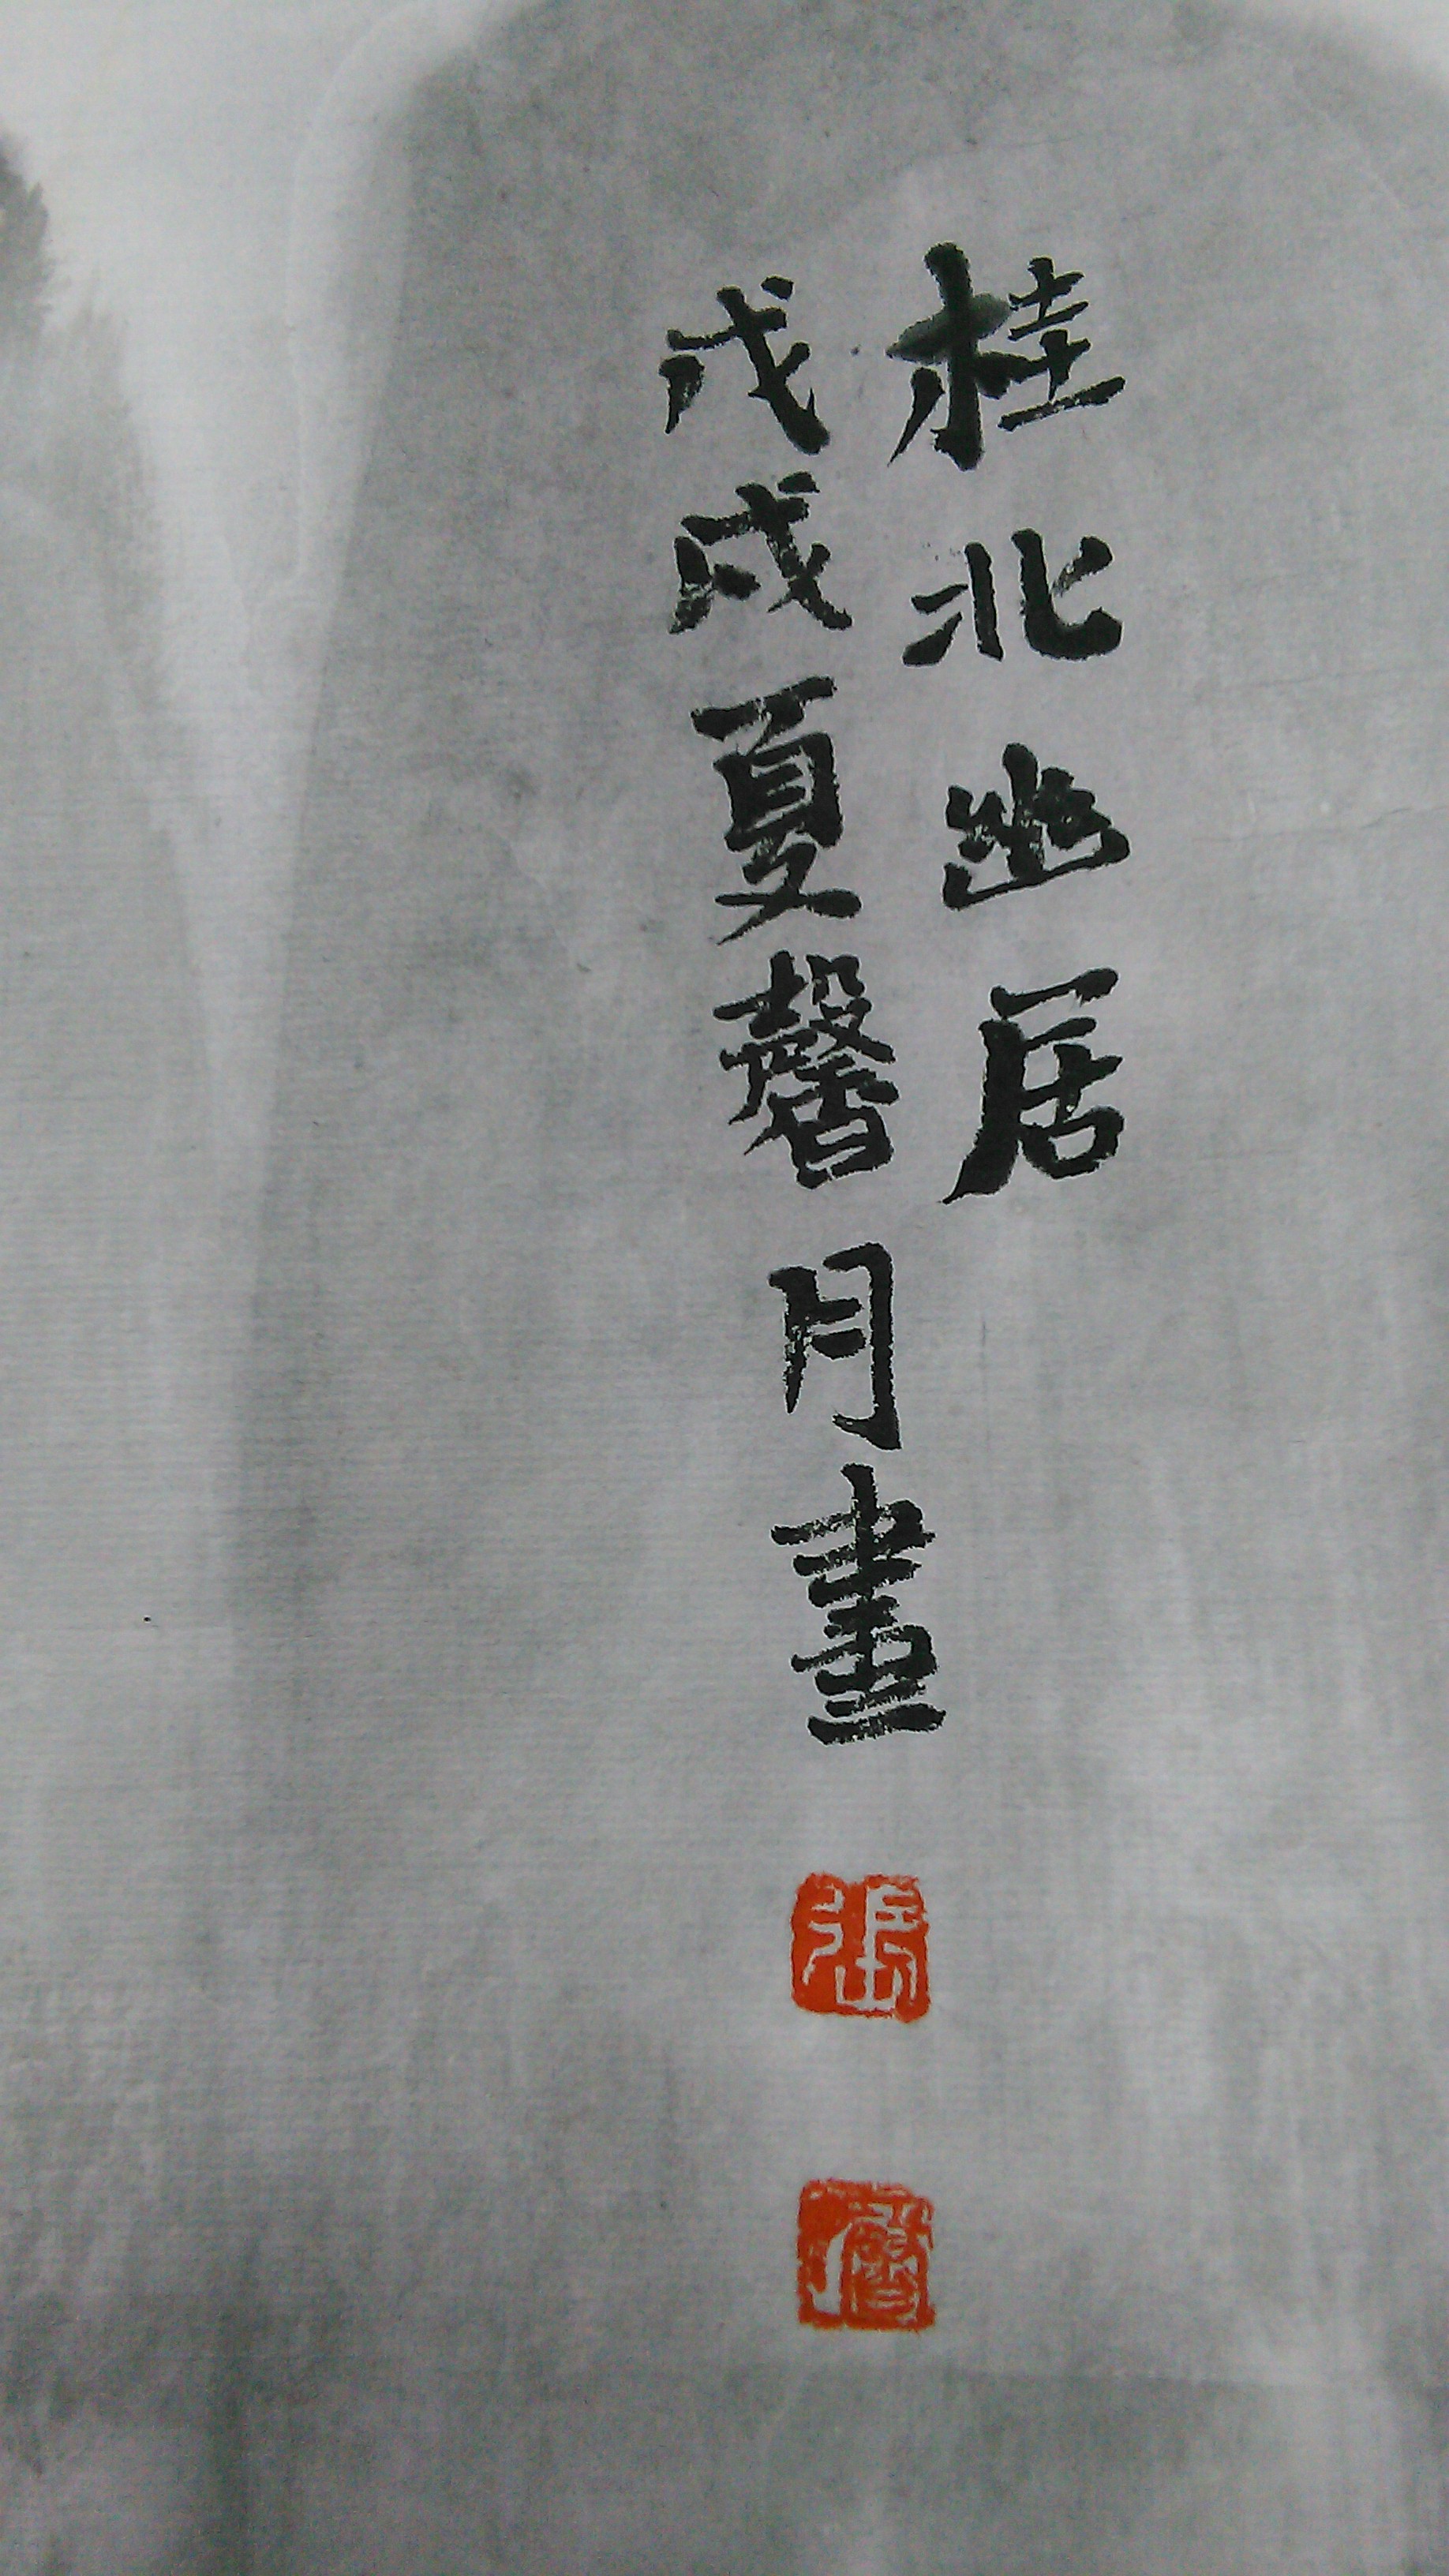 桂北幽居
戊戌夏馨月畫
張